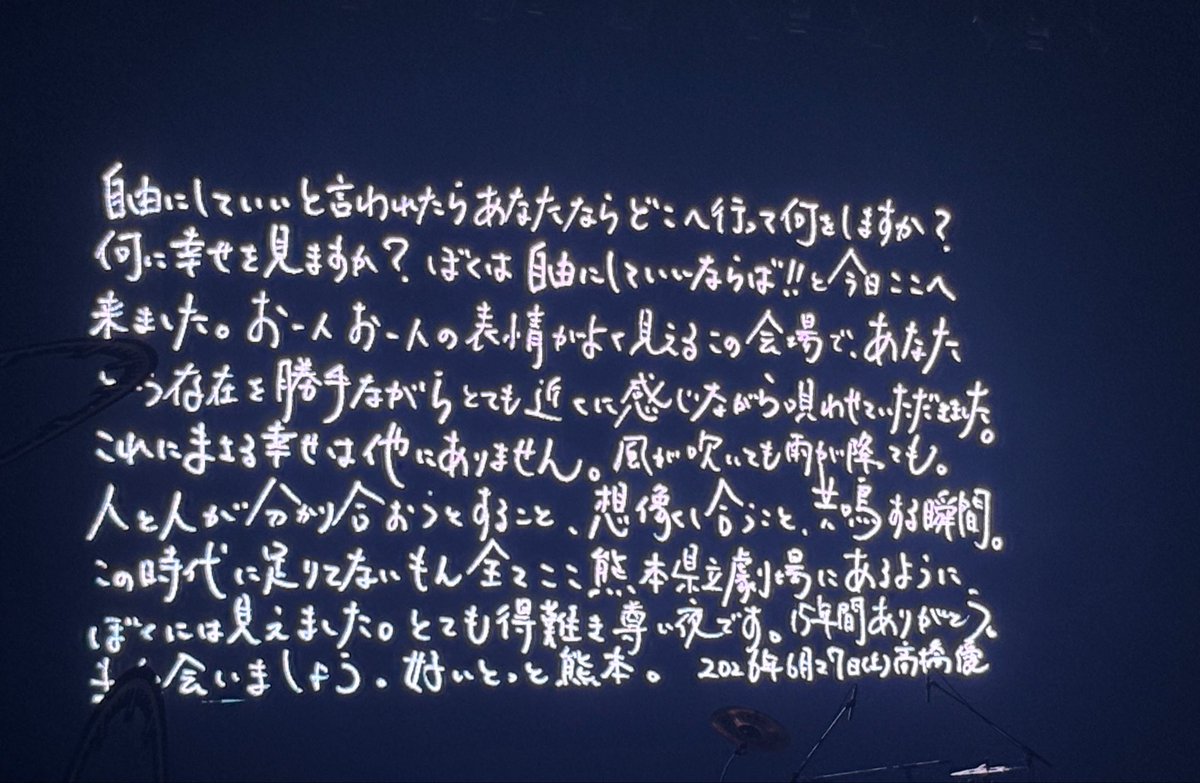 自由にしていいと言われたらあなたならどこへ行って何をしますか?
何に幸せを見ますか? ぼくは自由にしていいならば!!と今日ここへ
来ました。お一人お一人の表情がよく見えるこの会場で、あなた
という存在を勝手ながらとても近くに感じながら唄わせていただきました。
これにまさる幸せは他にありません。風が吹いても雨が降っても。
人と人が分かり合おうとすること、想像し合うこと、共鳴する瞬間。
この時代に足りてないもん全てここ熊本県立劇場にあるように
ぼくには見えました。とても得難き尊い夜です。15年間ありがとう。
また会いましょう。好いとっと熊本。 2026年6月27日(土)高橋優